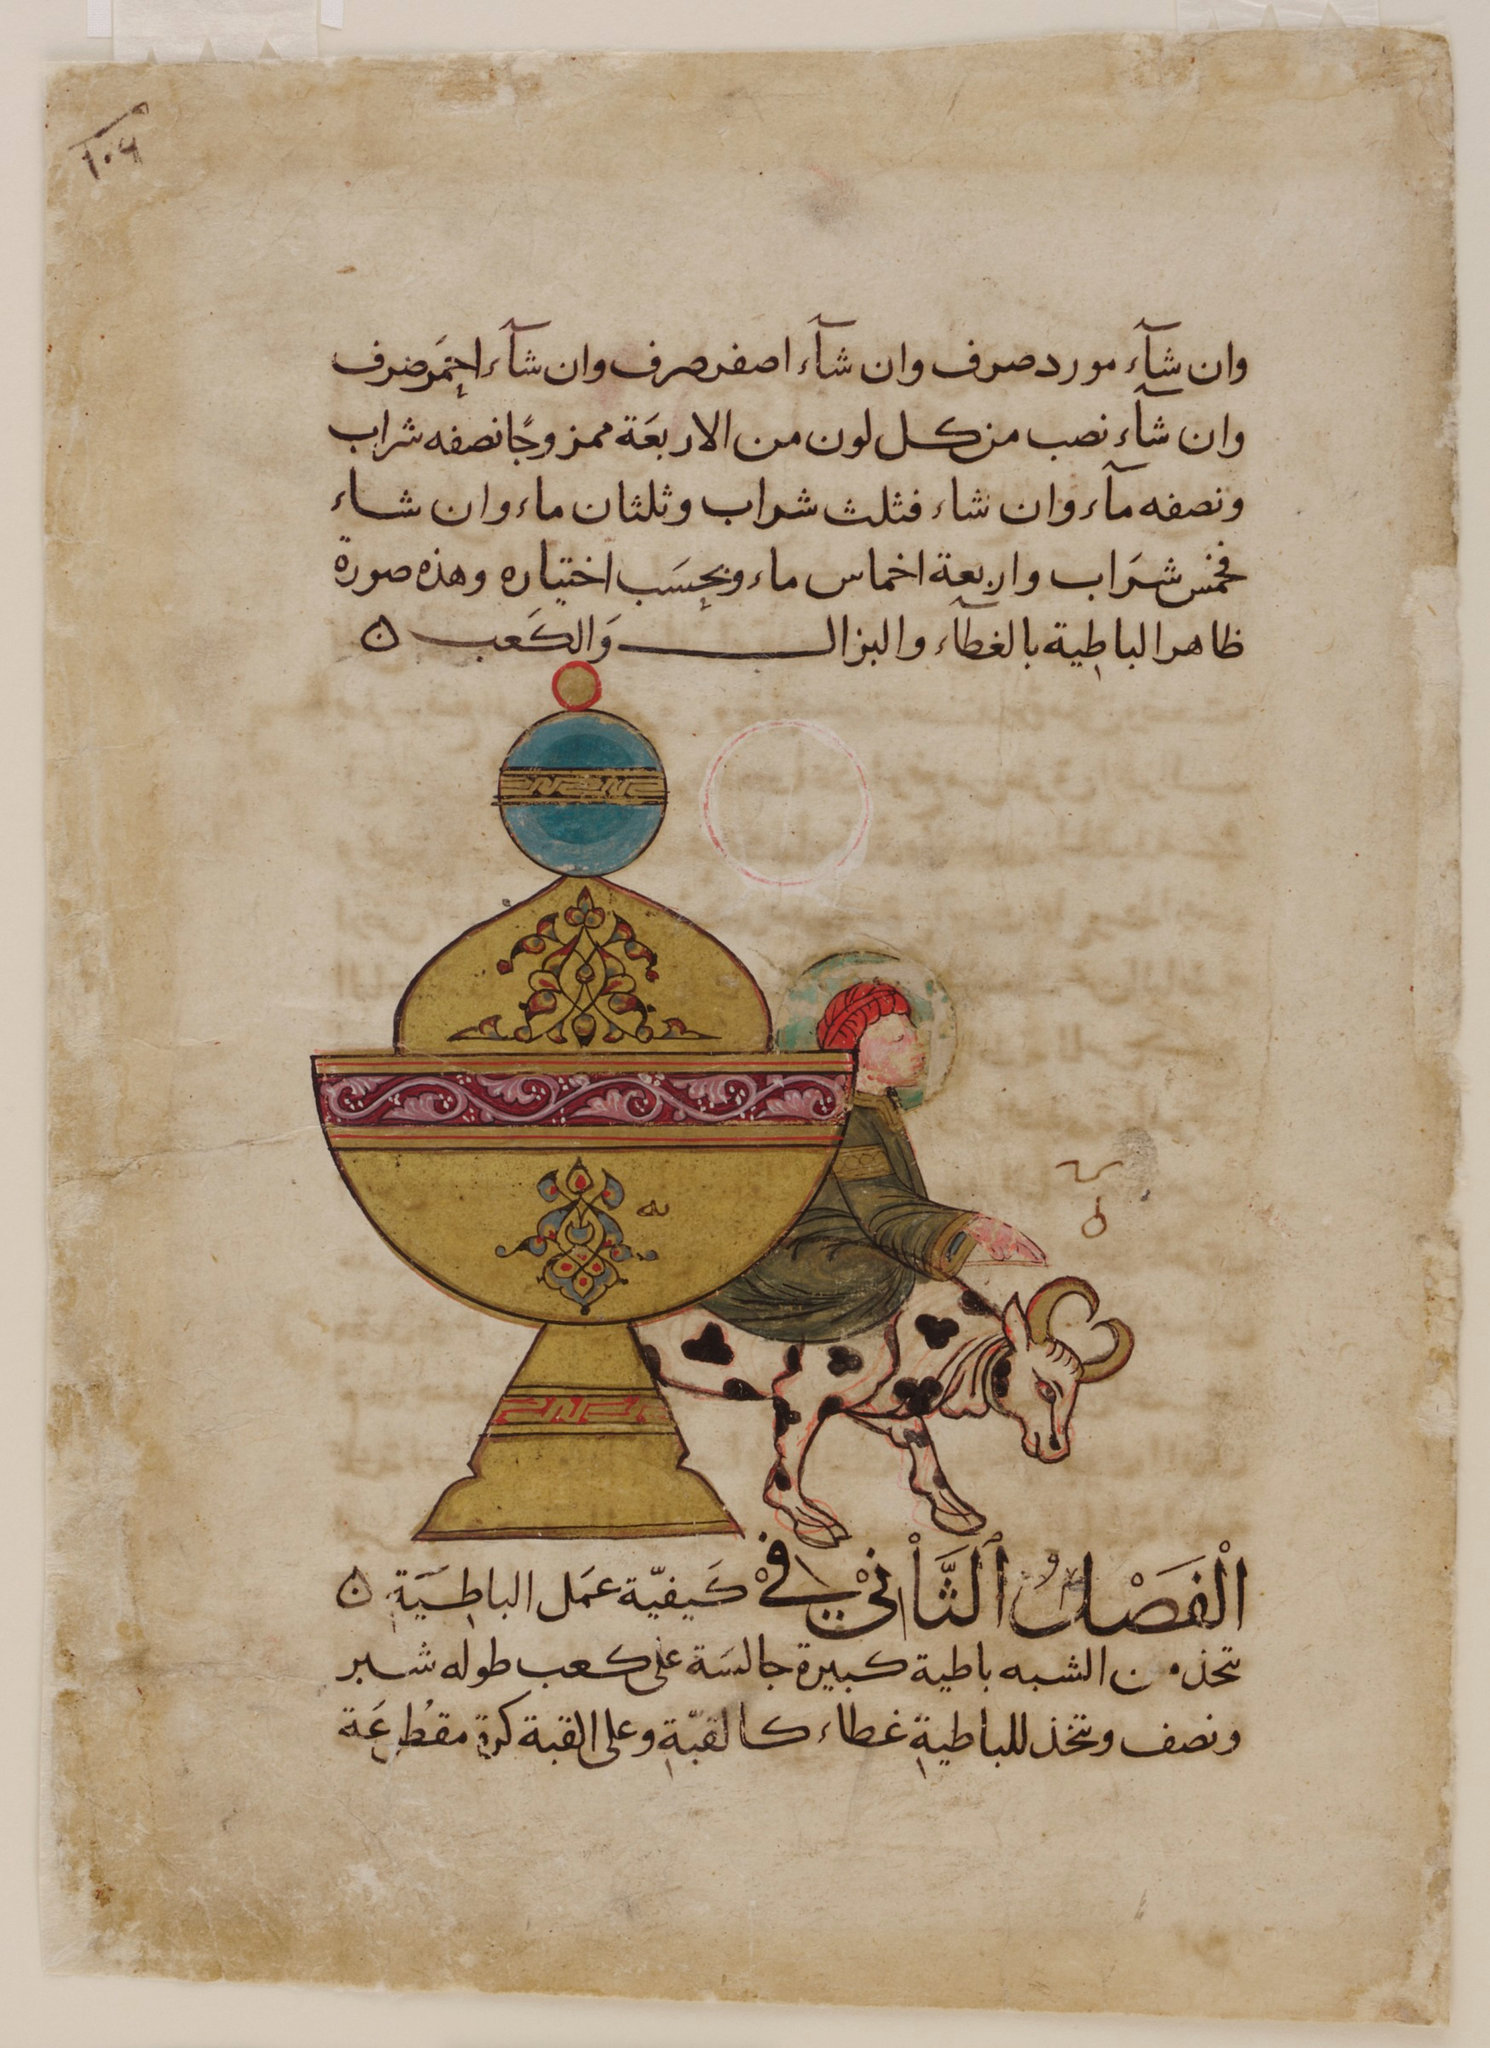 ١٠٩
وان شآء مورد صرف وان شآء اصفر صرف وان شآء احمَر صرف
وان شآء نصب من كل لون من الاربعَة ممزوجًا نصفه شراب
ونصفه مآء وان شاء فثلث شراب وثلثان ماء وان شاء
فخمس شرَاب واربعة اخماس ماء وبحِسَب اختياره وهذه صورة
ظاهر الباطية بالغطآء والبزال وَالكَعب ن
يه
الْفَصْلُ الثَّانْيْ فيْ كَيفيّة عمَل الباطِيَةِ ن
تخذ من الشبه باطية كبيرة جالسَة على كعب طوله شبر
ونصف ويتخذ للباطيةِ غطاء كالقبّةِ وعلى القبة كرة مقطِعَة